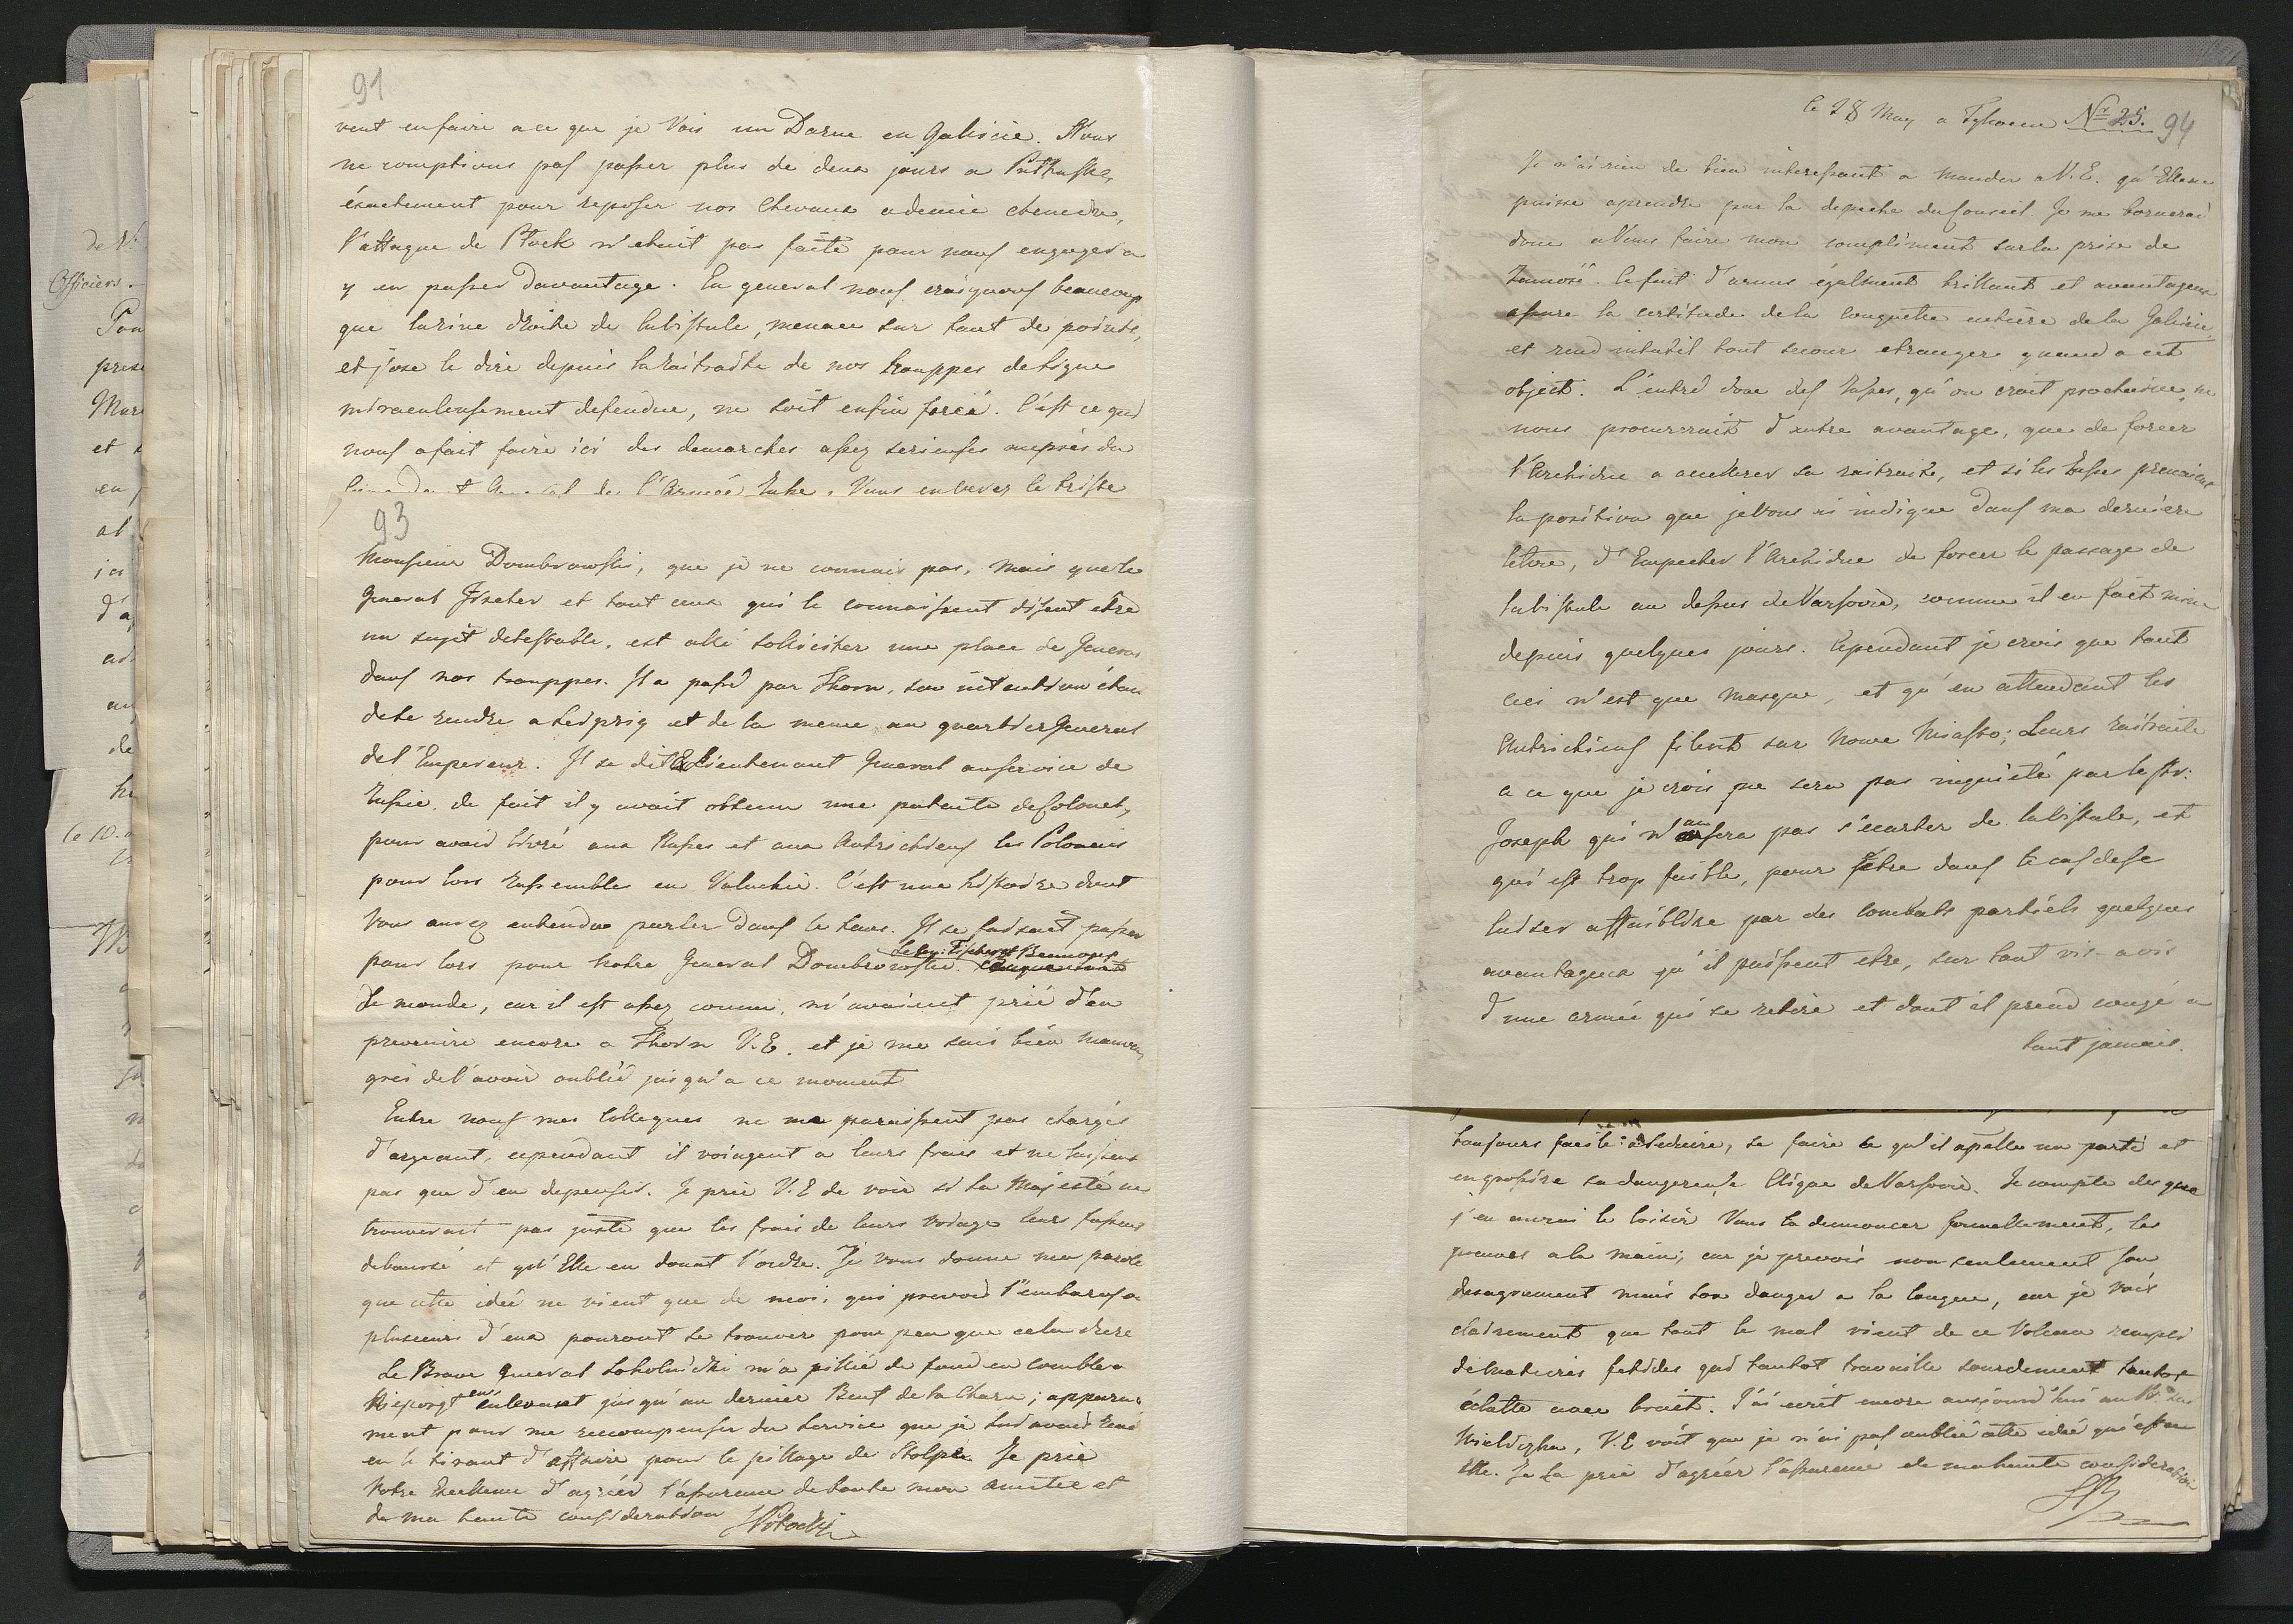 de V.
Officiers.
Pon
prese
Mar
et
en
al
ici
d'a
ad
au
de
le 10.
91
veut enfaire a ce que je Vois un Darue en Galicie. Nous
ne comptions pas passer plus de deux jours a Pulthusk,
éxactement pour reposer nos Chevaux
l'attaque de Plock n'etait pas faite pour nous engager a
y en passer davantage. En general nous craignons beaucoup
que la rive droite de la Vistule, menacé sur tant de points,
et j'ose le dire depuis la raitraite de nos trouppes de ligne
miraculeusement defendue, ne soit enfin forcé. C'est ce qui
nous a fait faire ici des demarches assez serieuses aupres du
General de l'Armée Russe. Vous en verez le triste
93
Monsieur Dombrowski, que je ne connais pas, mais que le
General Fischer et tout ceux qui le connaissent disent etre
un sujet detestable, est allé solliciter une place de General
dans nos trouppes. Il a passé par Thorn, son intention étan
de se rendre a Leipzig et de la meme au quartier General
de l'Empereur. Il se dit Lieutenant General au service de
Russie. de fait il y avait obtenu une patente de Colonel,
pour avoir livré aux Russes et aux Autrichiens les Polonais
pour lors rassemblés en Valachie. C'est une histoire dont
vous aurez entendue parler dans le tems. Il se faisait passer
pour lors pour notre General Dombrowski.
Le Gen: Fischer et Beaucoup
de monde, car il est assez connu, m'avaient prié d'en
prevenire encore a Thorn V.E. et je me sais bien mauvais
grés de l'avoir oublié jusqu'a ce moment
Entre nous mes Collegues ne me paraissent pas chargés
d'argeant, cependant il voiagent a leurs frais et ne laissent
pas que d'en depenser. Je prie V.E de voir si Sa Majesté ne
trouverait pas juste que les frais de leurs voiage leurs fussent
deboursé et qu'Elle en donat l'ordre. Je vous donne ma parole
que cette idée ne vient que de moi, qui prevoit l'embaras ou
plusieurs d'eux pouront se trouver pour peu que cela dure
Le Brave General Sokolnicki m'a pillié de fond en comble a
en enlevant jusqu'au dernier Beuf de la Charu; apparem
ment pour me recompenser du service que je lui avait rend
en le tirant d'affaire pour le pillage de Stolpe. Je prie
Votre Excellence d'agréer l'assurance de toute mon amitié et
de ma haute consideration SPotocki
le 28 May a Tykocin Nr 25. 94
Je n'ai rien de bien interessant a mander a V.E. qu'Elle ne
puisse aprendre par la depeche du Conseil. Je me bornerai
donc a Vous faire mon compliment sur la prise de
Zamość. Ce fait d'armes égalment brillant et avantageux
assure la certitude de la conquette entiere de la Galicie,
et rend inutil tout secour etranger quand a cet
object. L'entré donc des Russes, qu'on croit prochaine, ne
nous procurerait d'autre avantage, que de forcer
l'Archiduc a accelerer sa raitraite, et si les Russes prenaient
la position que je Vous ai indique dans ma derniere
lettre, d'Empecher l'Archiduc de forcer le passage de
la Vistule au dessus de Varsovie, comme il en fait mine
depuis quelques jours. Cependant je crois que tout
ceci n'est que masque, et qu'en attendant les
Autrichiens filent sur Nowe Miasto; Leurs raitraite
a ce que je crois ne sera pas inquiété par le Pr:
Joseph qui n'ausera pas s'ecarter de la Vistule, et
qui est trop faible, pour etre dans le cas de se
laisser affaiblire par des combats partiels quelques
avantageux qu'il puissent etre, sur tout vis-a vis
d'une armée qui se retire et dont il prend congé a
tant jamais.
toujours facile a seduire, se faire ce qu'il apelle un parti et
engrossire sa dangereuse Clique de Varsovie. Je compte des que
j'en aurai le loisir Vous la denoncer formellement, les
preuves a la main; car je prevois non seulement son
desagrument mais son danger a la longue, car je vois
clairement que tout le mal vient de ce Volcan rempli
de matieres fetides qui tantot travaille sourdement tantot
éclatte avec bruit. J'ai ecrit encore aujourd'hui au
V.E voit que je n'ai pas oublié cette idée qui est a
Elle. Je La prie d'agréer l'assurance de ma haute consideration
SP